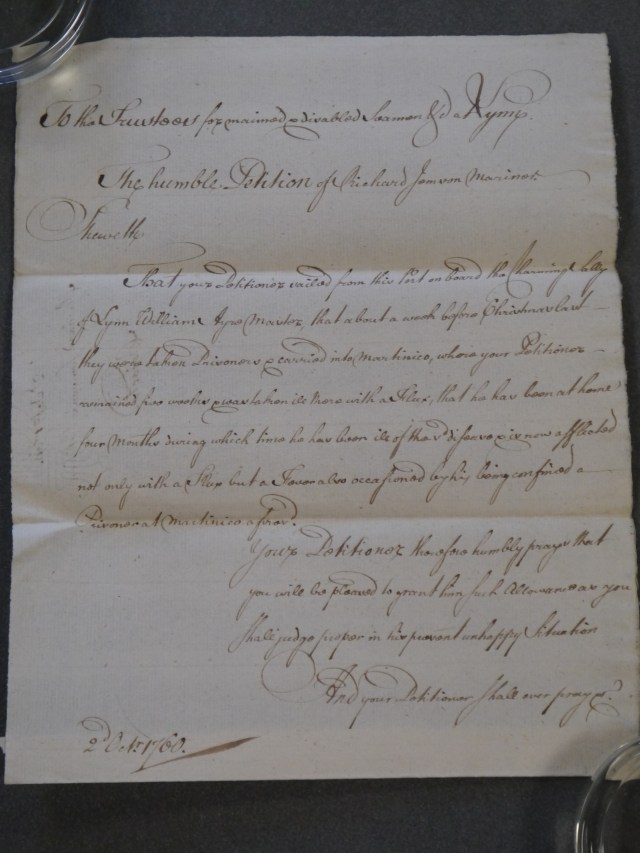 To the Trustees for maimed & disabled Seamen &c a Lynn.
The humble Petition of Richard Mariner.
Sheweth
That your Petitioner sailed from this Port on board the Charming Betty
of Lynn William Ayre Master, that about a week before Christmas last
they were taken Prisoners & carried into Martinico, where your Petitioner
remained five weeks & was taken ill there with a Flux, that he has been at home
four Months during which time he has been ill of the sd. disease & is now afflicted
not only with a Flux but a Fever also occasioned by his being confined a
Prisoner at Martinico aforesd.
Your Petitioner therefore humbly prays that
you will be pleased to grant him such Allowance as you
shall judge proper in his present unhappy Situation
And your Petitioner shall ever pray &c.
2d Octr. 1760.